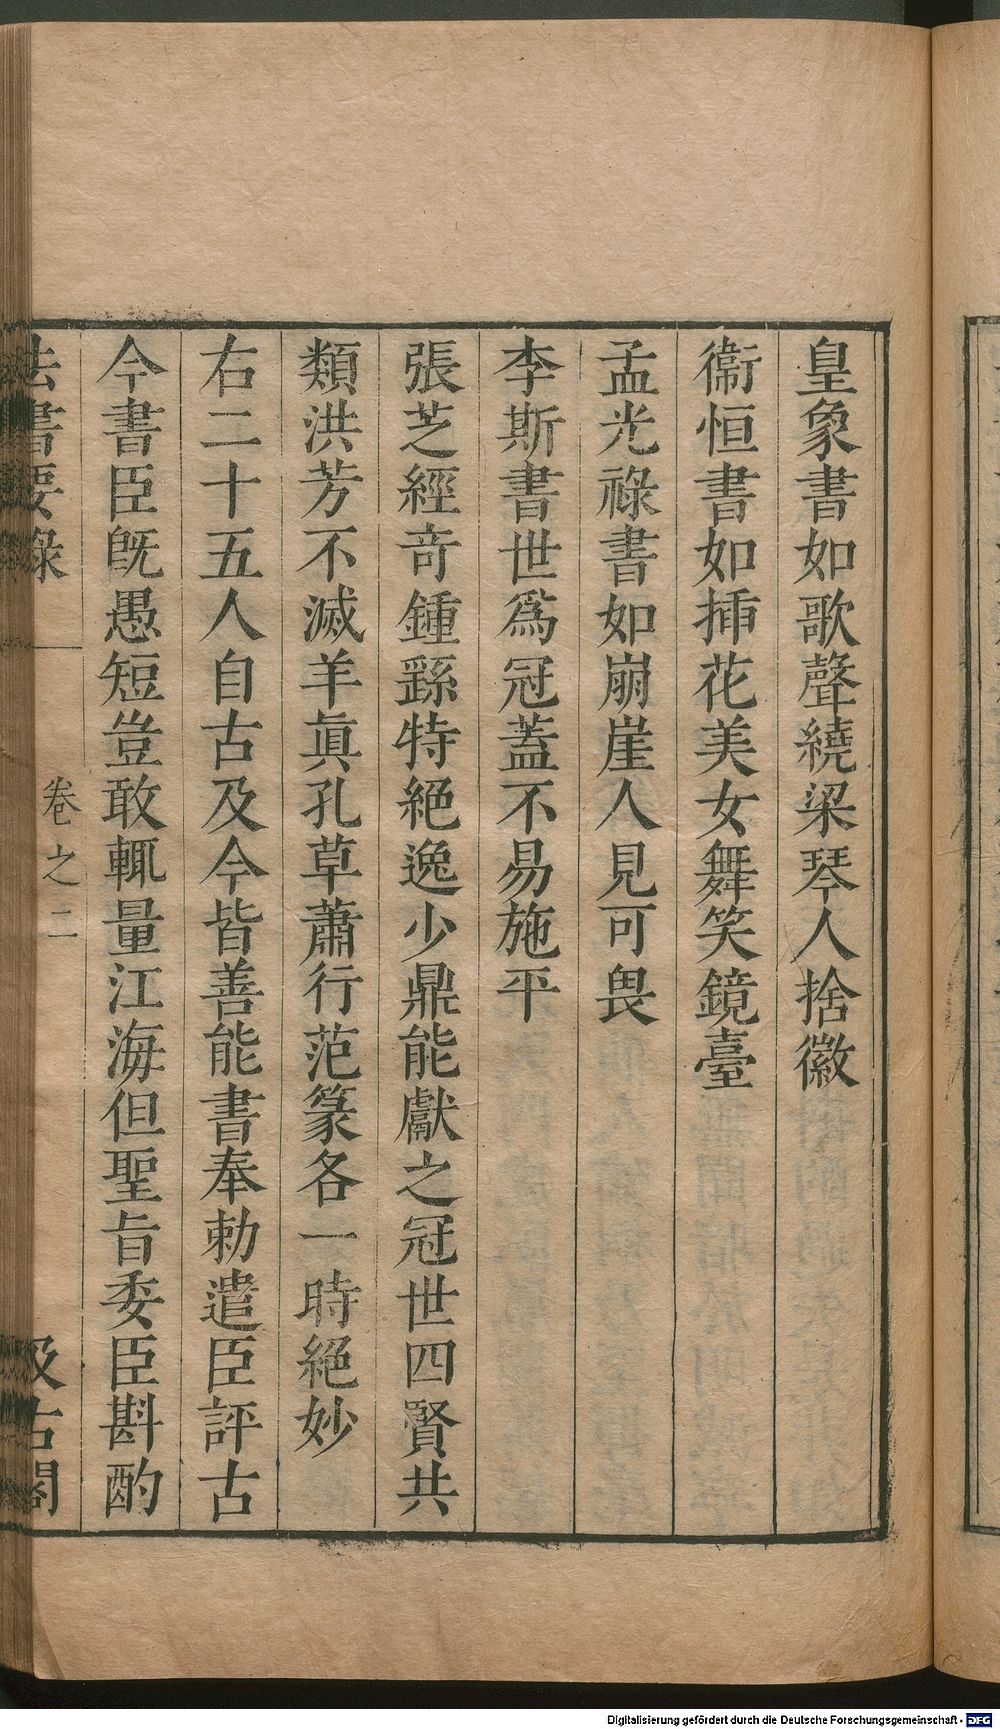 皇象書如歌聲繞梁琴人捨徽
衞恒書如揷花美女舞笑鏡臺
孟光祿書如崩崖人見可畏
李斯書世爲冠蓋不易施平
張芝經奇鍾繇特絕逸少鼎能獻之冠世四賢共
類洪芳不滅羊眞孔草蕭行范篆各一時絕妙
右二十五人自古及今皆善能書奉勅遣臣評古
今書臣旣愚短豈敢輒量江海但聖旨委臣斟酌
法書要錄 卷之二 汲古閣
Digitalisierung gefördert durch die Deutsche Forschungsgemeinschaft - DFG